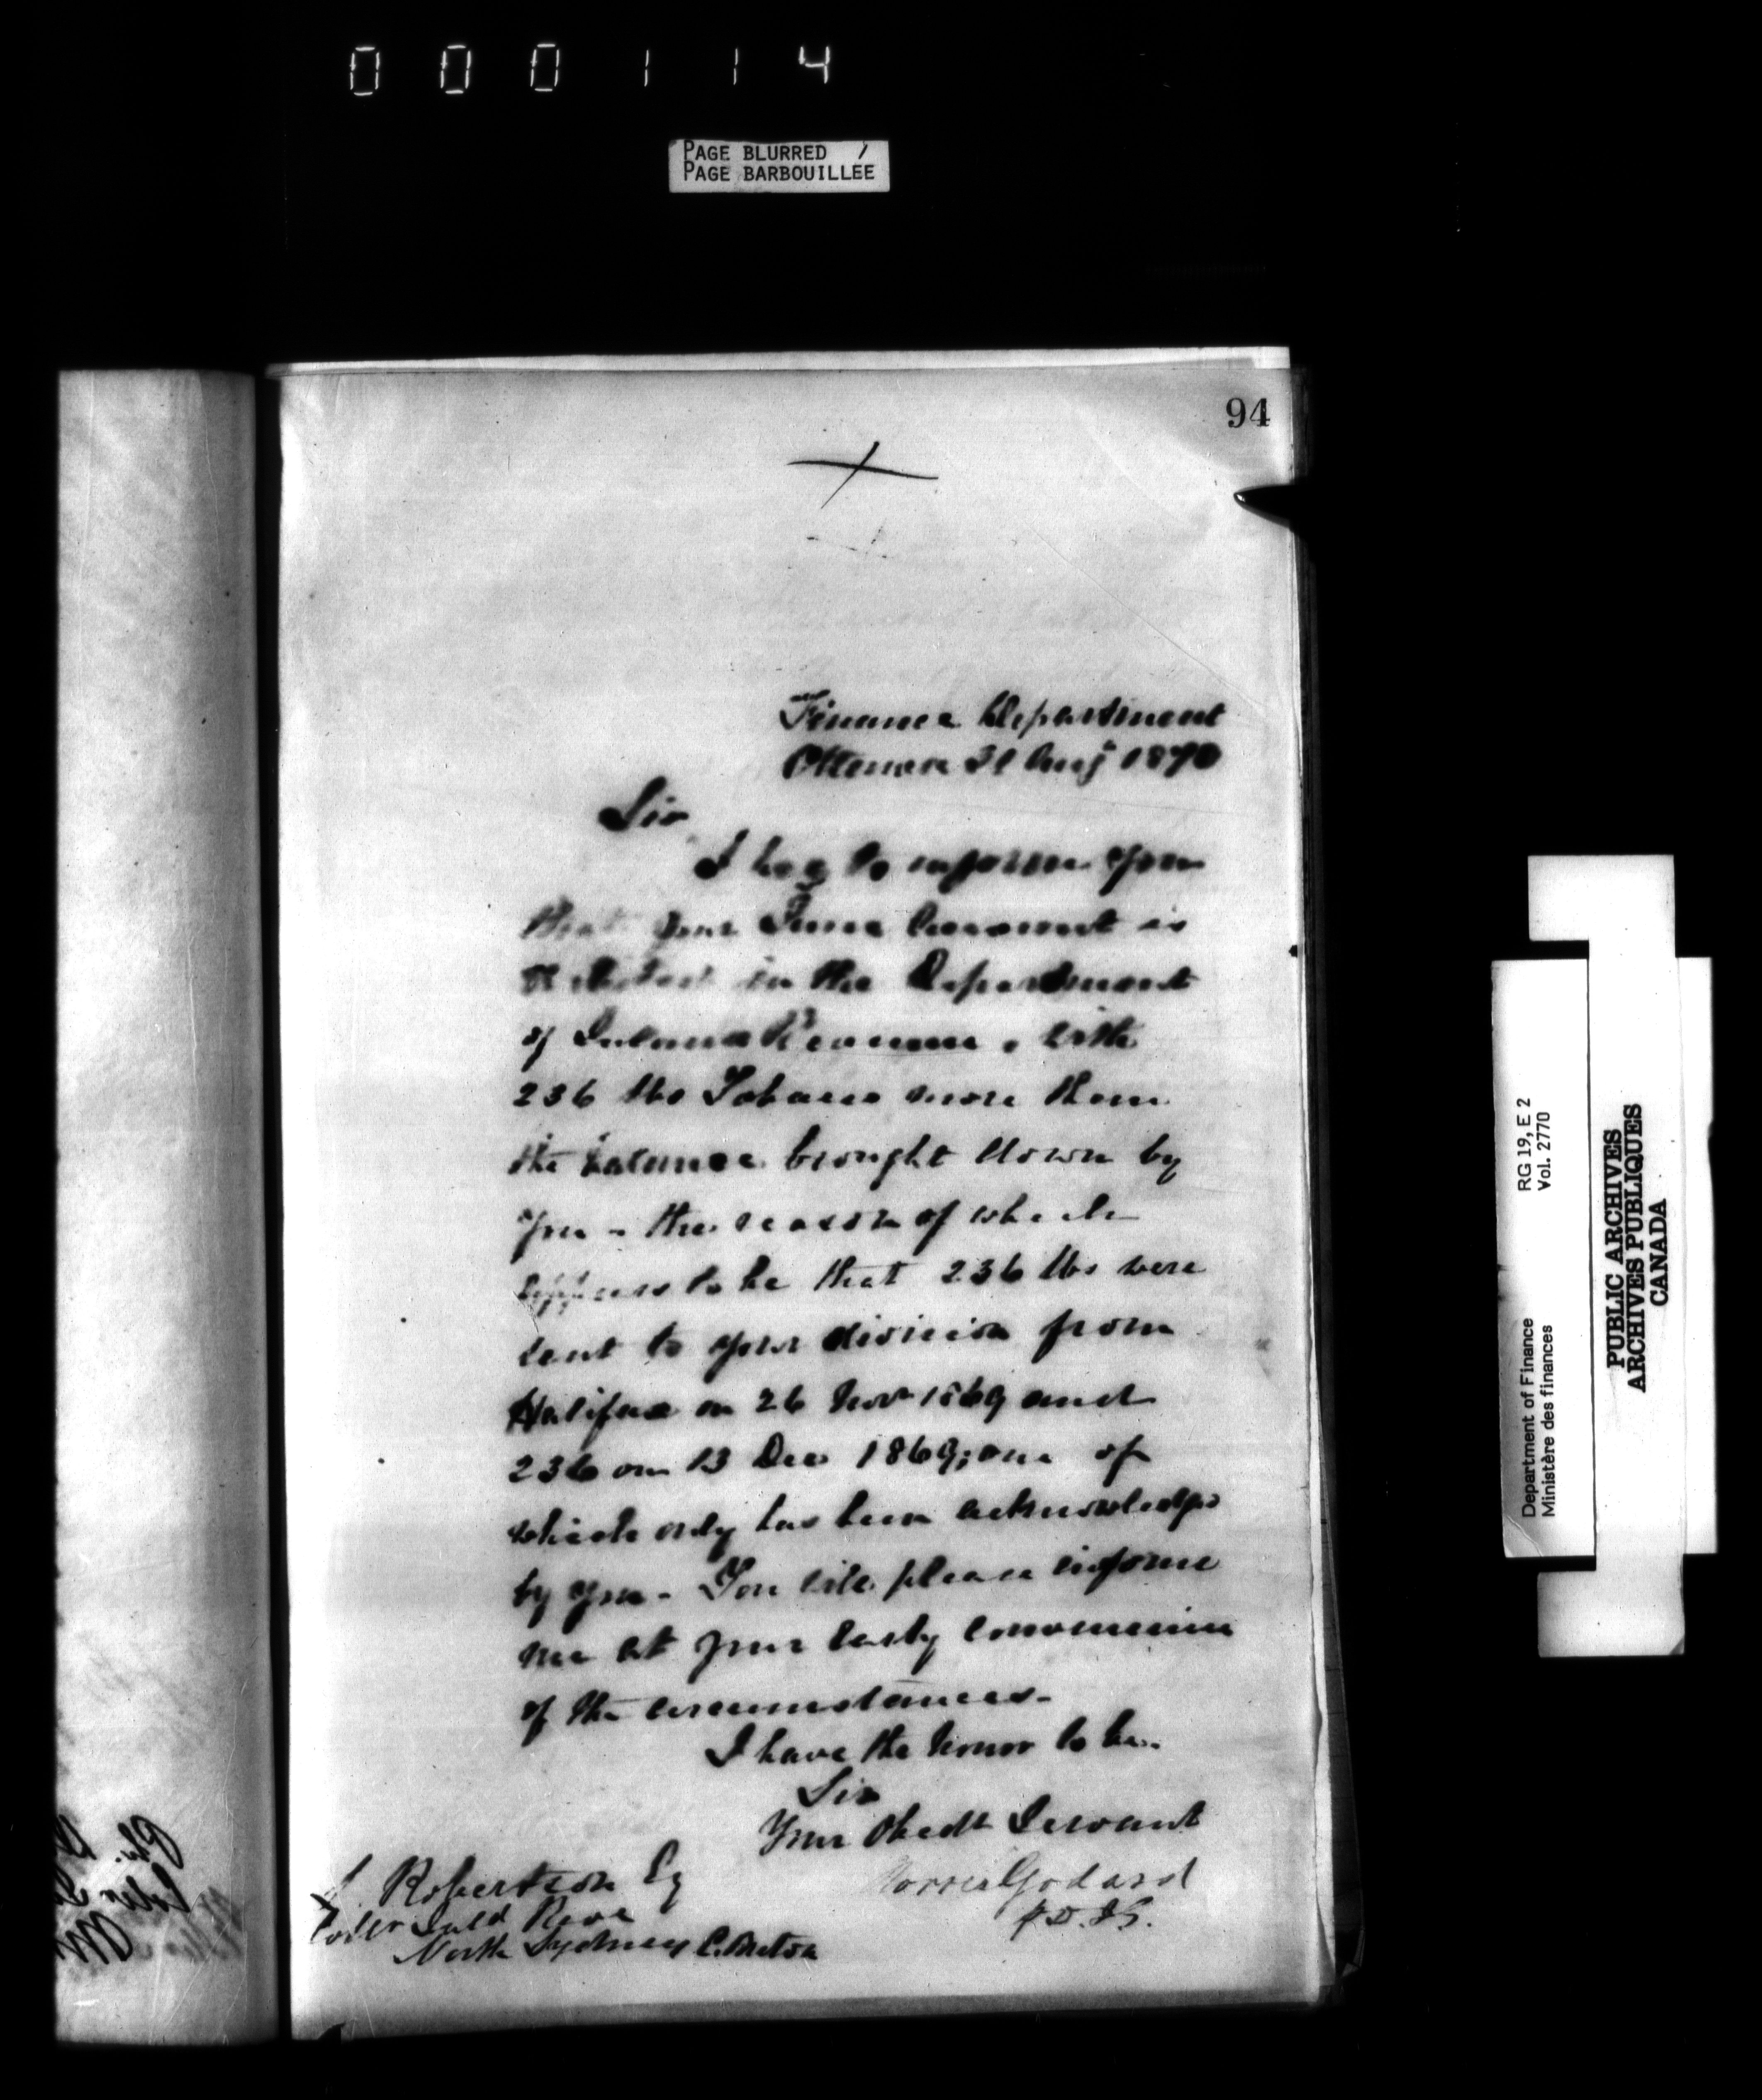 000114
PAGE BLURRED /
PAGE BARBOUILLÉE
94
Finance Department
Ottawa 31 Aug 1870
Sir
I beg to inform you
that your June Account is
in the Department
of Inland Revenue, with
236 lbs Tobacco more than
the balance brought down by
you - the reason of which
appears to be that 236 lbs were
sent to your division from
Halifax on 26 Nov 1869 and
236 on 13 Dec 1869; one of
which only has been acknowledged
by you - You will please inform
me at your early convenience
of the circumstances -
I have the honor to be
Sir
Your Obedt Servant
Godard
Robertson Esq
Collr Inld Reve
North Sydney C. Breton
Department of Finance RG 19, E 2
Ministère des finances Vol. 2770
PUBLIC ARCHIVES
ARCHIVES PUBLIQUES
CANADA